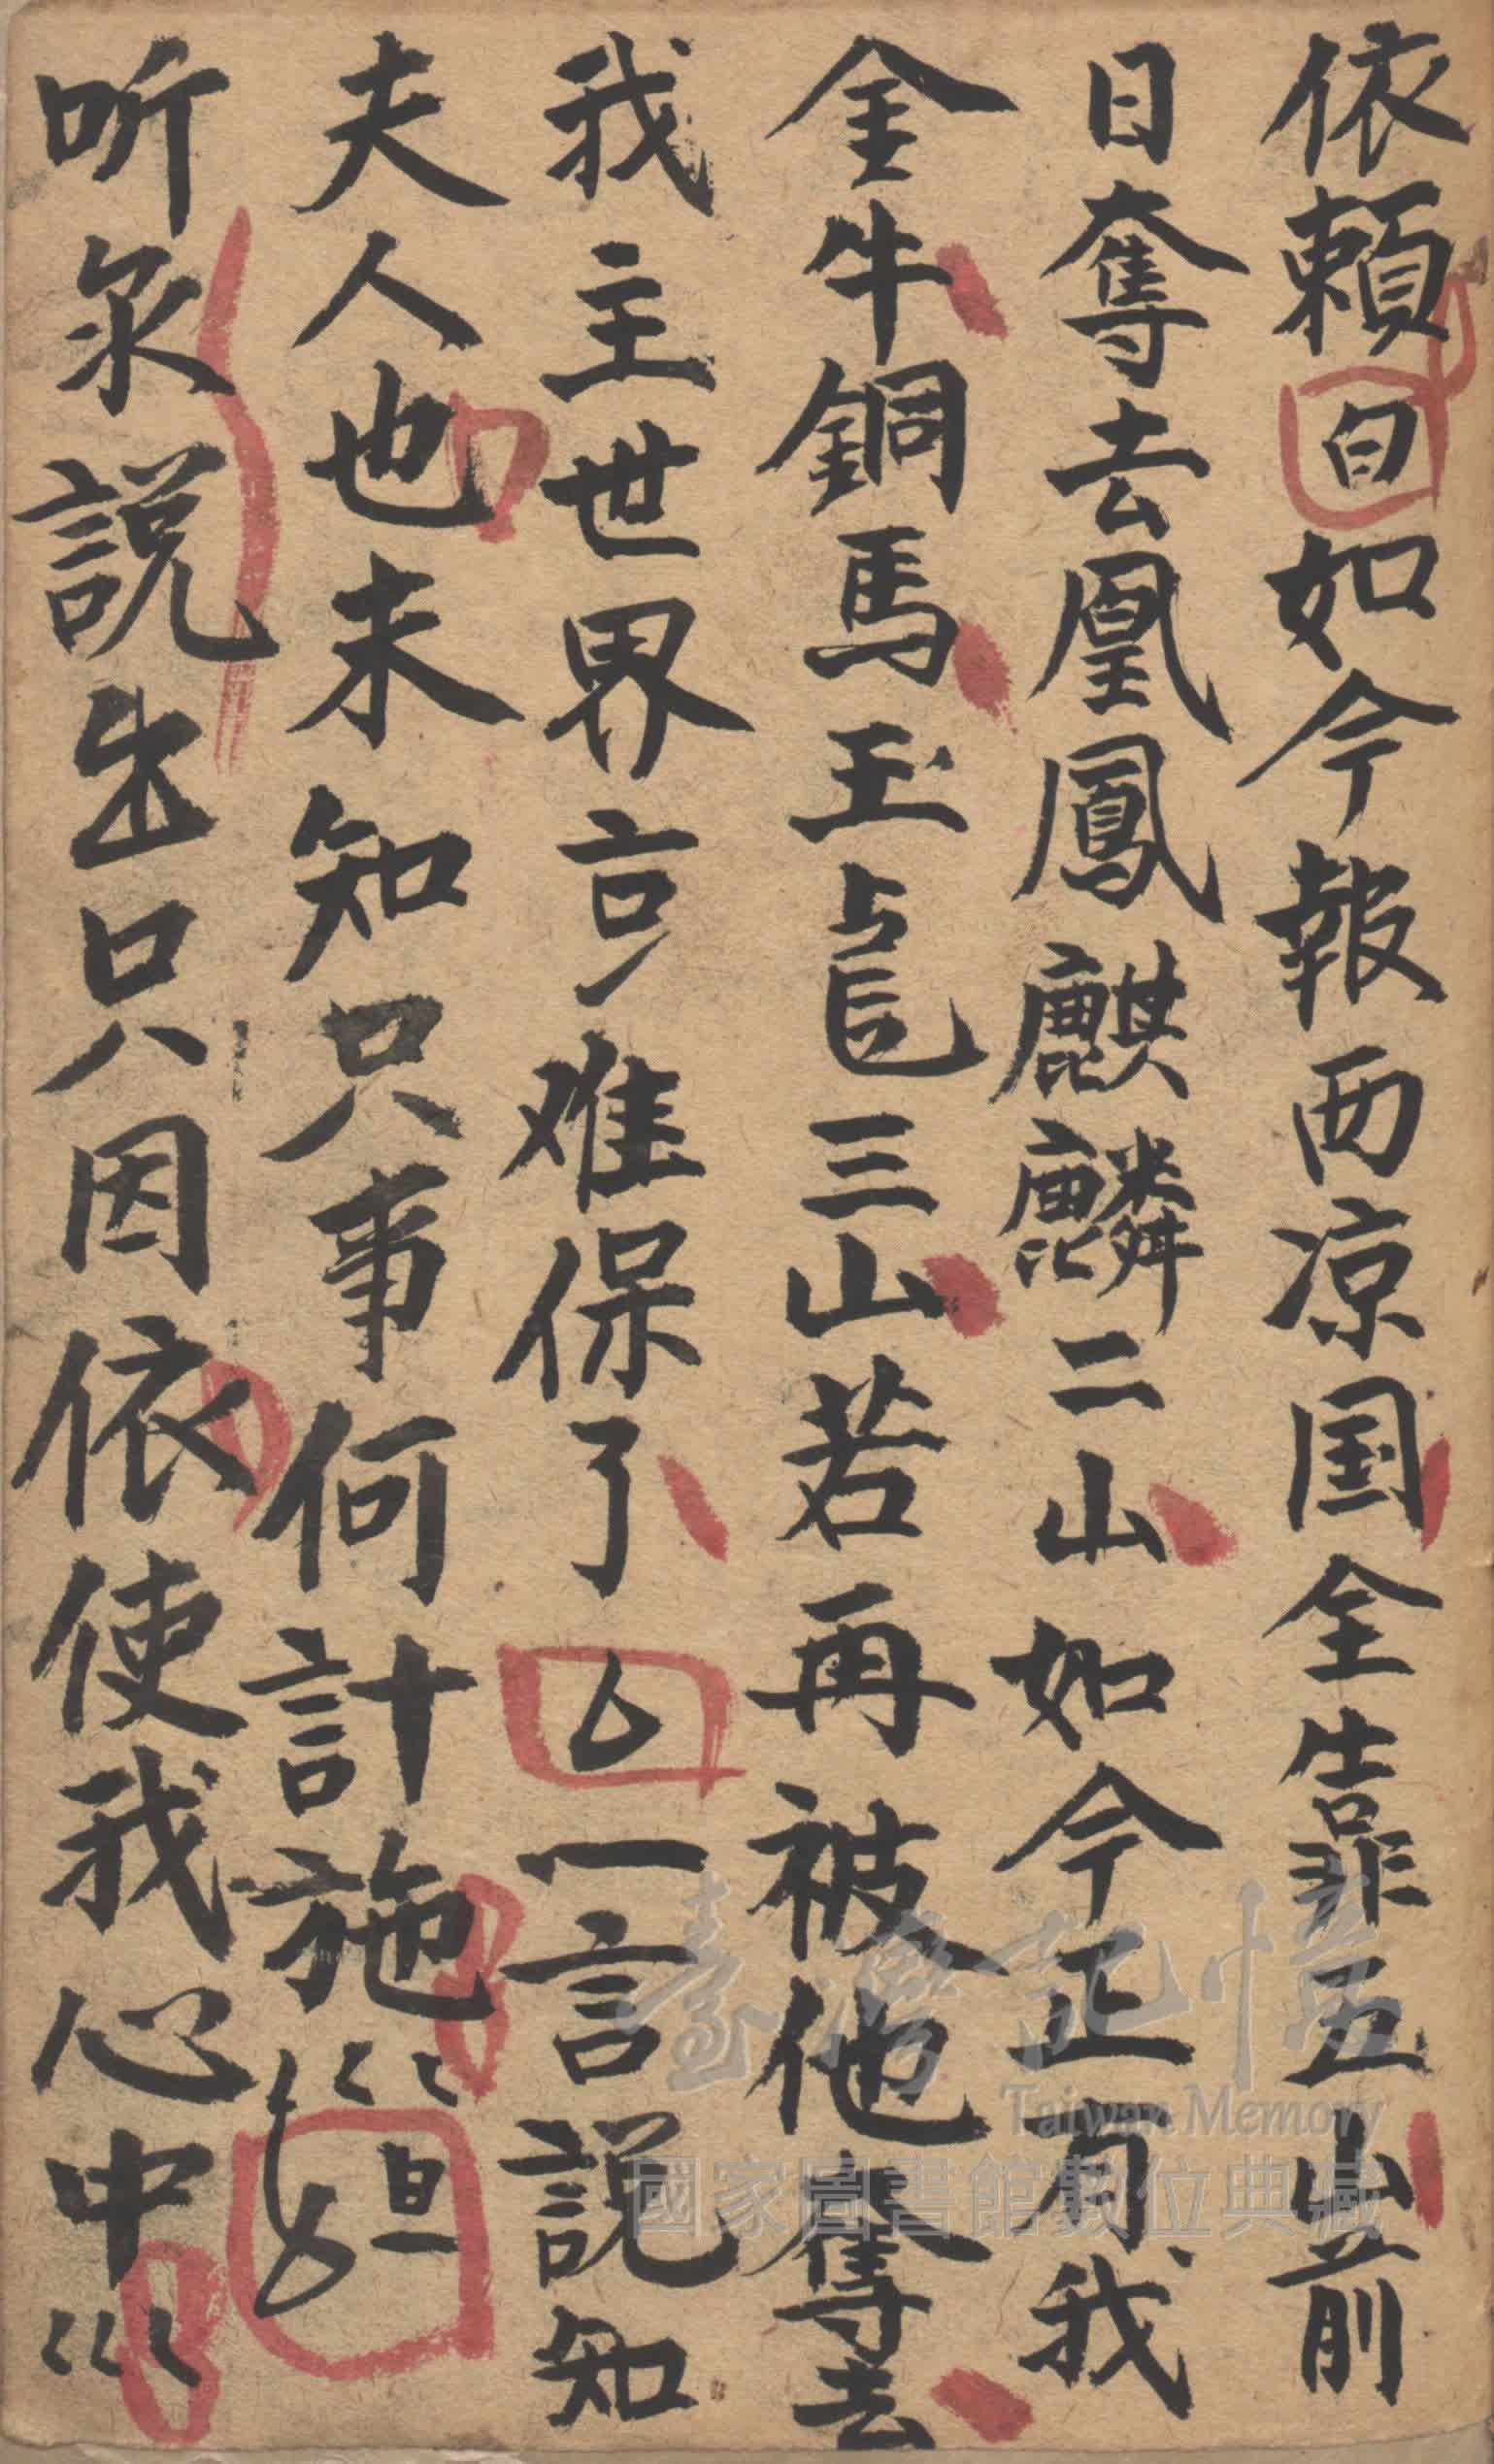 依賴白如今報西凉国全靠五山前
日奪去凰鳳麒麟二山如今正有我
金牛銅馬玉竜三山若再被他奪去
我主世界难保了一言說知
夫人也未知只事何計施〻〻〻旦
听說出只因依使我心中〻〻〻
臺灣記憶
Taiwan Memory
國家圖書館數位典藏